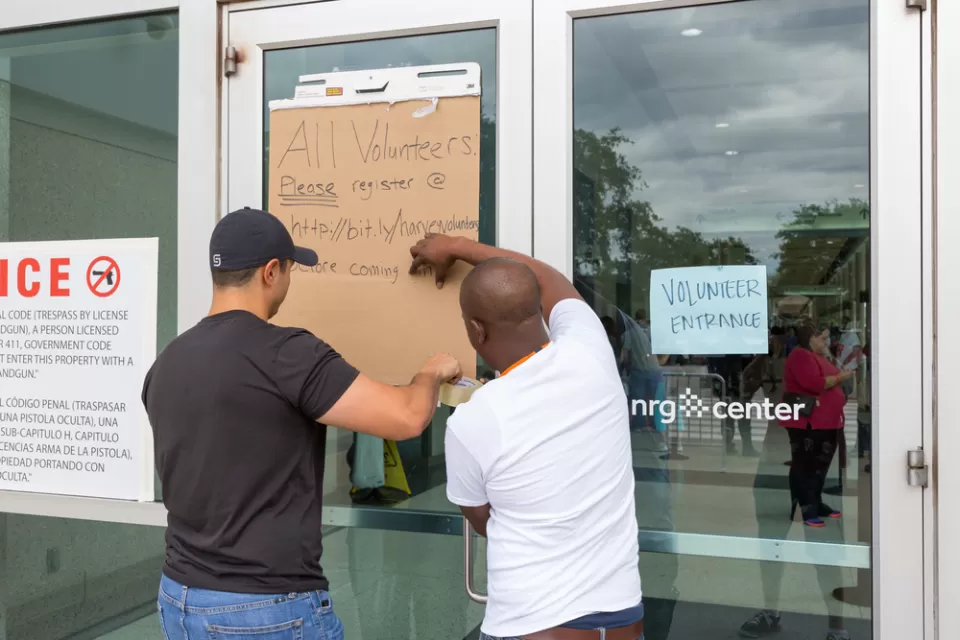 ICE
L CODE (TRESPASS BY LICENSE
NDGUN), A PERSON LICENSED
R 411, GOVERNMENT CODE
T ENTER THIS PROPERTY WITH A
ANDGUN."
L CÓDIGO PENAL (TRASPASAR
UNA PISTOLA OCULTA), UNA
SUB-CAPITULO H, CAPITULO
CENCIAS ARMA DE LA PISTOLA),
OPIEDAD PORTANDO CON
CULTA."
All Volunteers:
Please register @
http://bit.ly/harveyvolunteers
before coming in
VOLUNTEER
ENTRANCE
nrg center